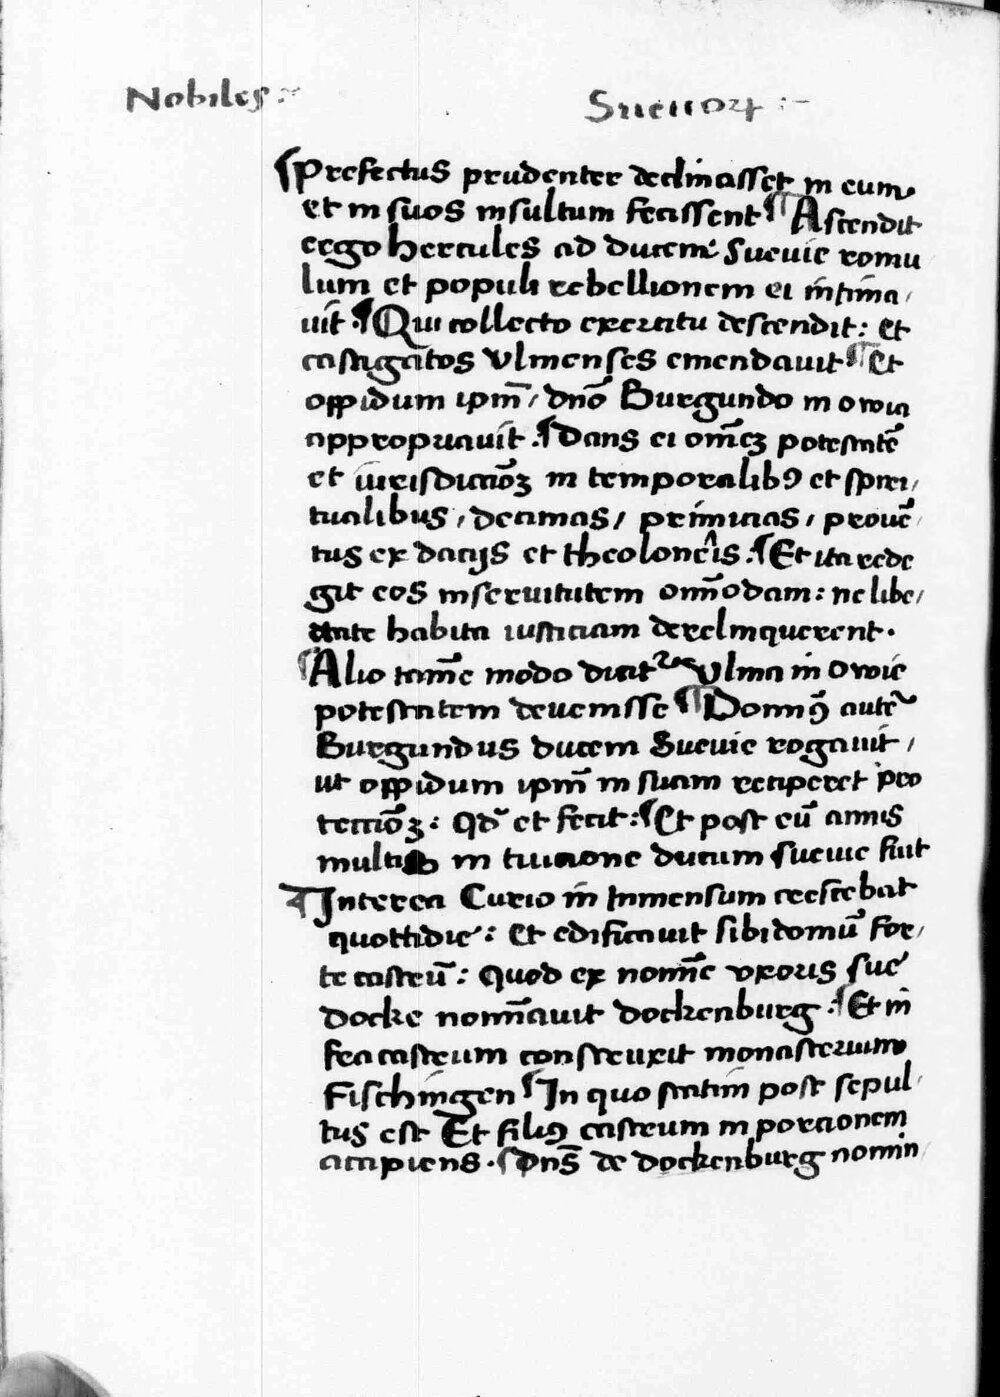 Nobiles :~ Sueuoꝝ :-
¶ Prefectus prudenter declinasset in eum
et in suos insultum fecissent ¶ Ascendit
ergo hercules ad ducem Sueuie romu
lum et populi rebellionem ei intima,
uit. ¶ Qui collecto exercitu descendit: et
castigatos Vlmenses emendauit ¶ Et
oppidum ipm̄, dn̄o Burgundo in owia
appropriauit. ¶ Dans ei om̄eꝫ potestatē
et iurisdictōꝫ in temporalibꝰ et spiri,
tualibus, decimas, primicias, prouē,
tus ex dacijs et theoloneis. ¶ Et ita rede
git eos in seruitutem om̄odam: ne libe,
tate habita iusticiam derelinquerent.
¶ Alio tam̄e modo dicit~ Vlma in Owie
potestatem deuenisse ¶ Dominꝰ autē
Burgundus ducem Sueuie rogauit,
ut oppidum ipm̄ in suam reciperet pro
tectiōꝫ: qd̄ et fecit: ¶ Et post eū annis
multis in tuicione ducum sueuie fuit
¶ Interea Curio in Inmensum crescebat
quottidie: Et edificauit sibi domū for,
te castrū: quod ex nom̄e vxoris sue
docke nom̄auit dockenburg: ¶ Et in
fra castrum construxit monasterium
Fischingen ¶ In quo statim post sepul,
tus est Et filiꝰ castrum in porcionem
accipiens. ¶ Dn̄s de dockenburg nomin,